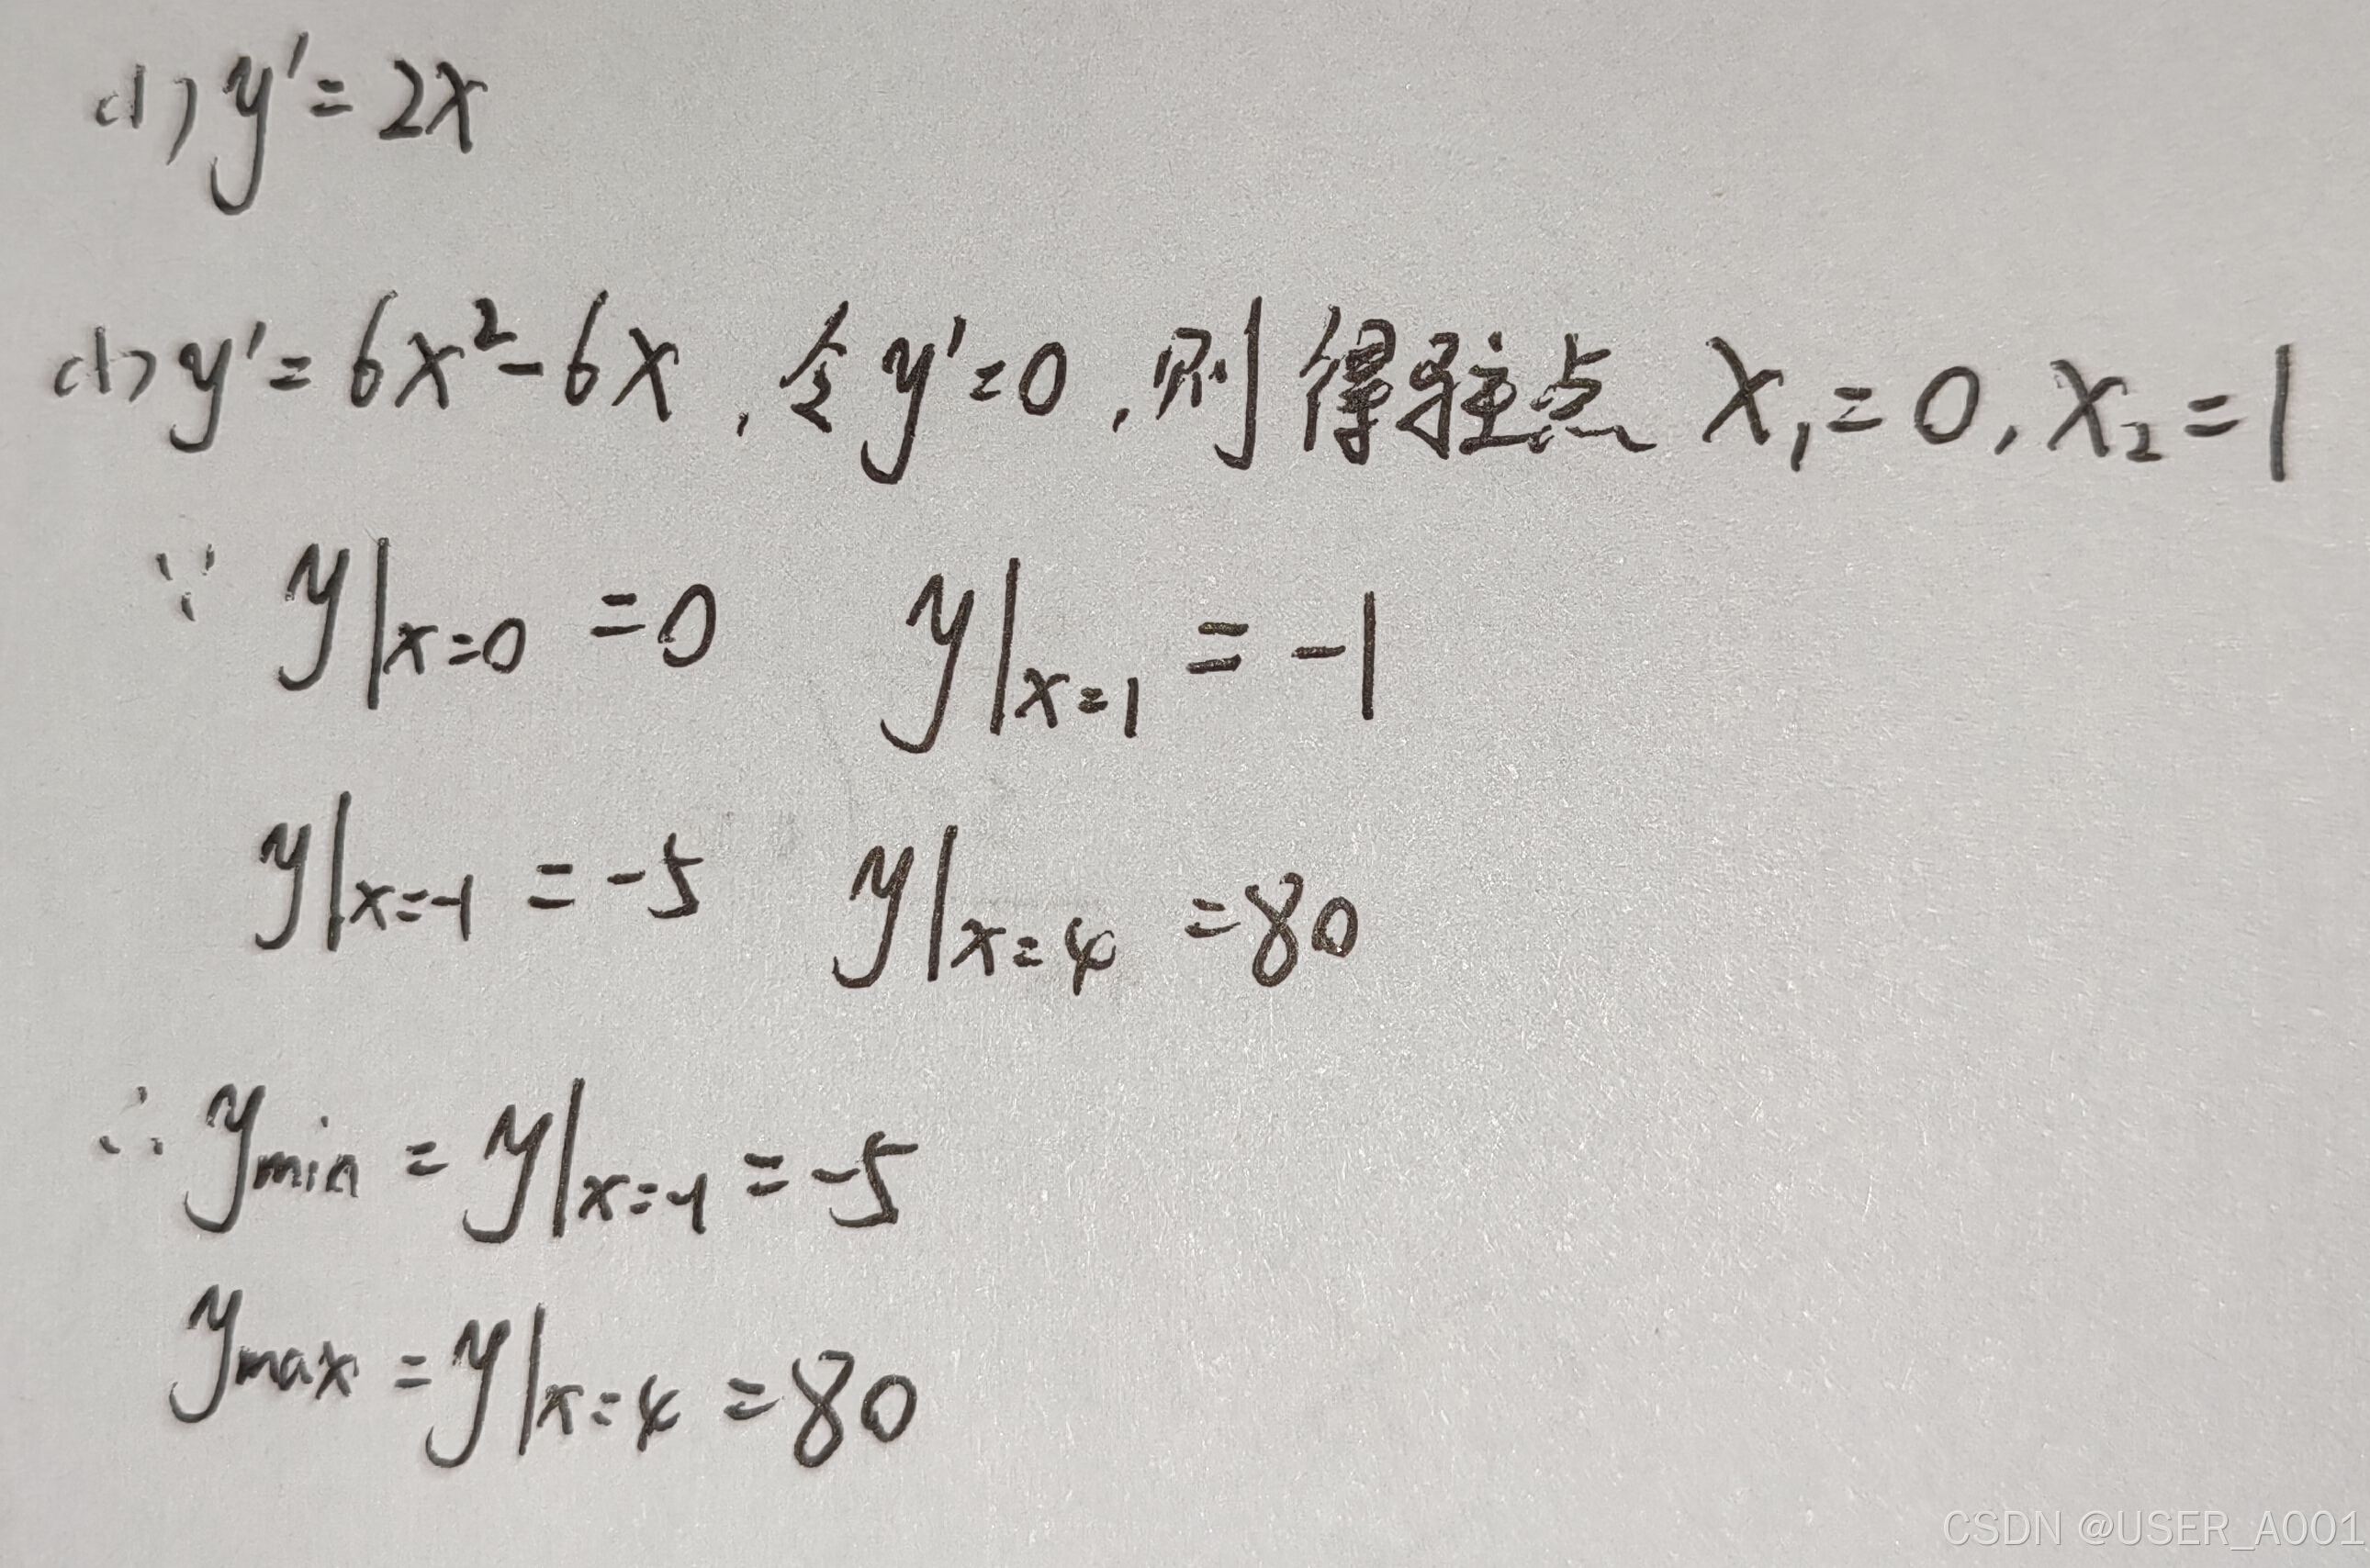 (1) y' = 2x
(1) y' = 6x² - 6x, 令y'=0, 则得驻点 x₁=0, x₂=1
∵ y|x=0 = 0 y|x=1 = -1
y|x=-1 = -5 y|x=4 = 80
∴ ymin = y|x=-1 = -5
ymax = y|x=4 = 80
CSDN @USER_A001